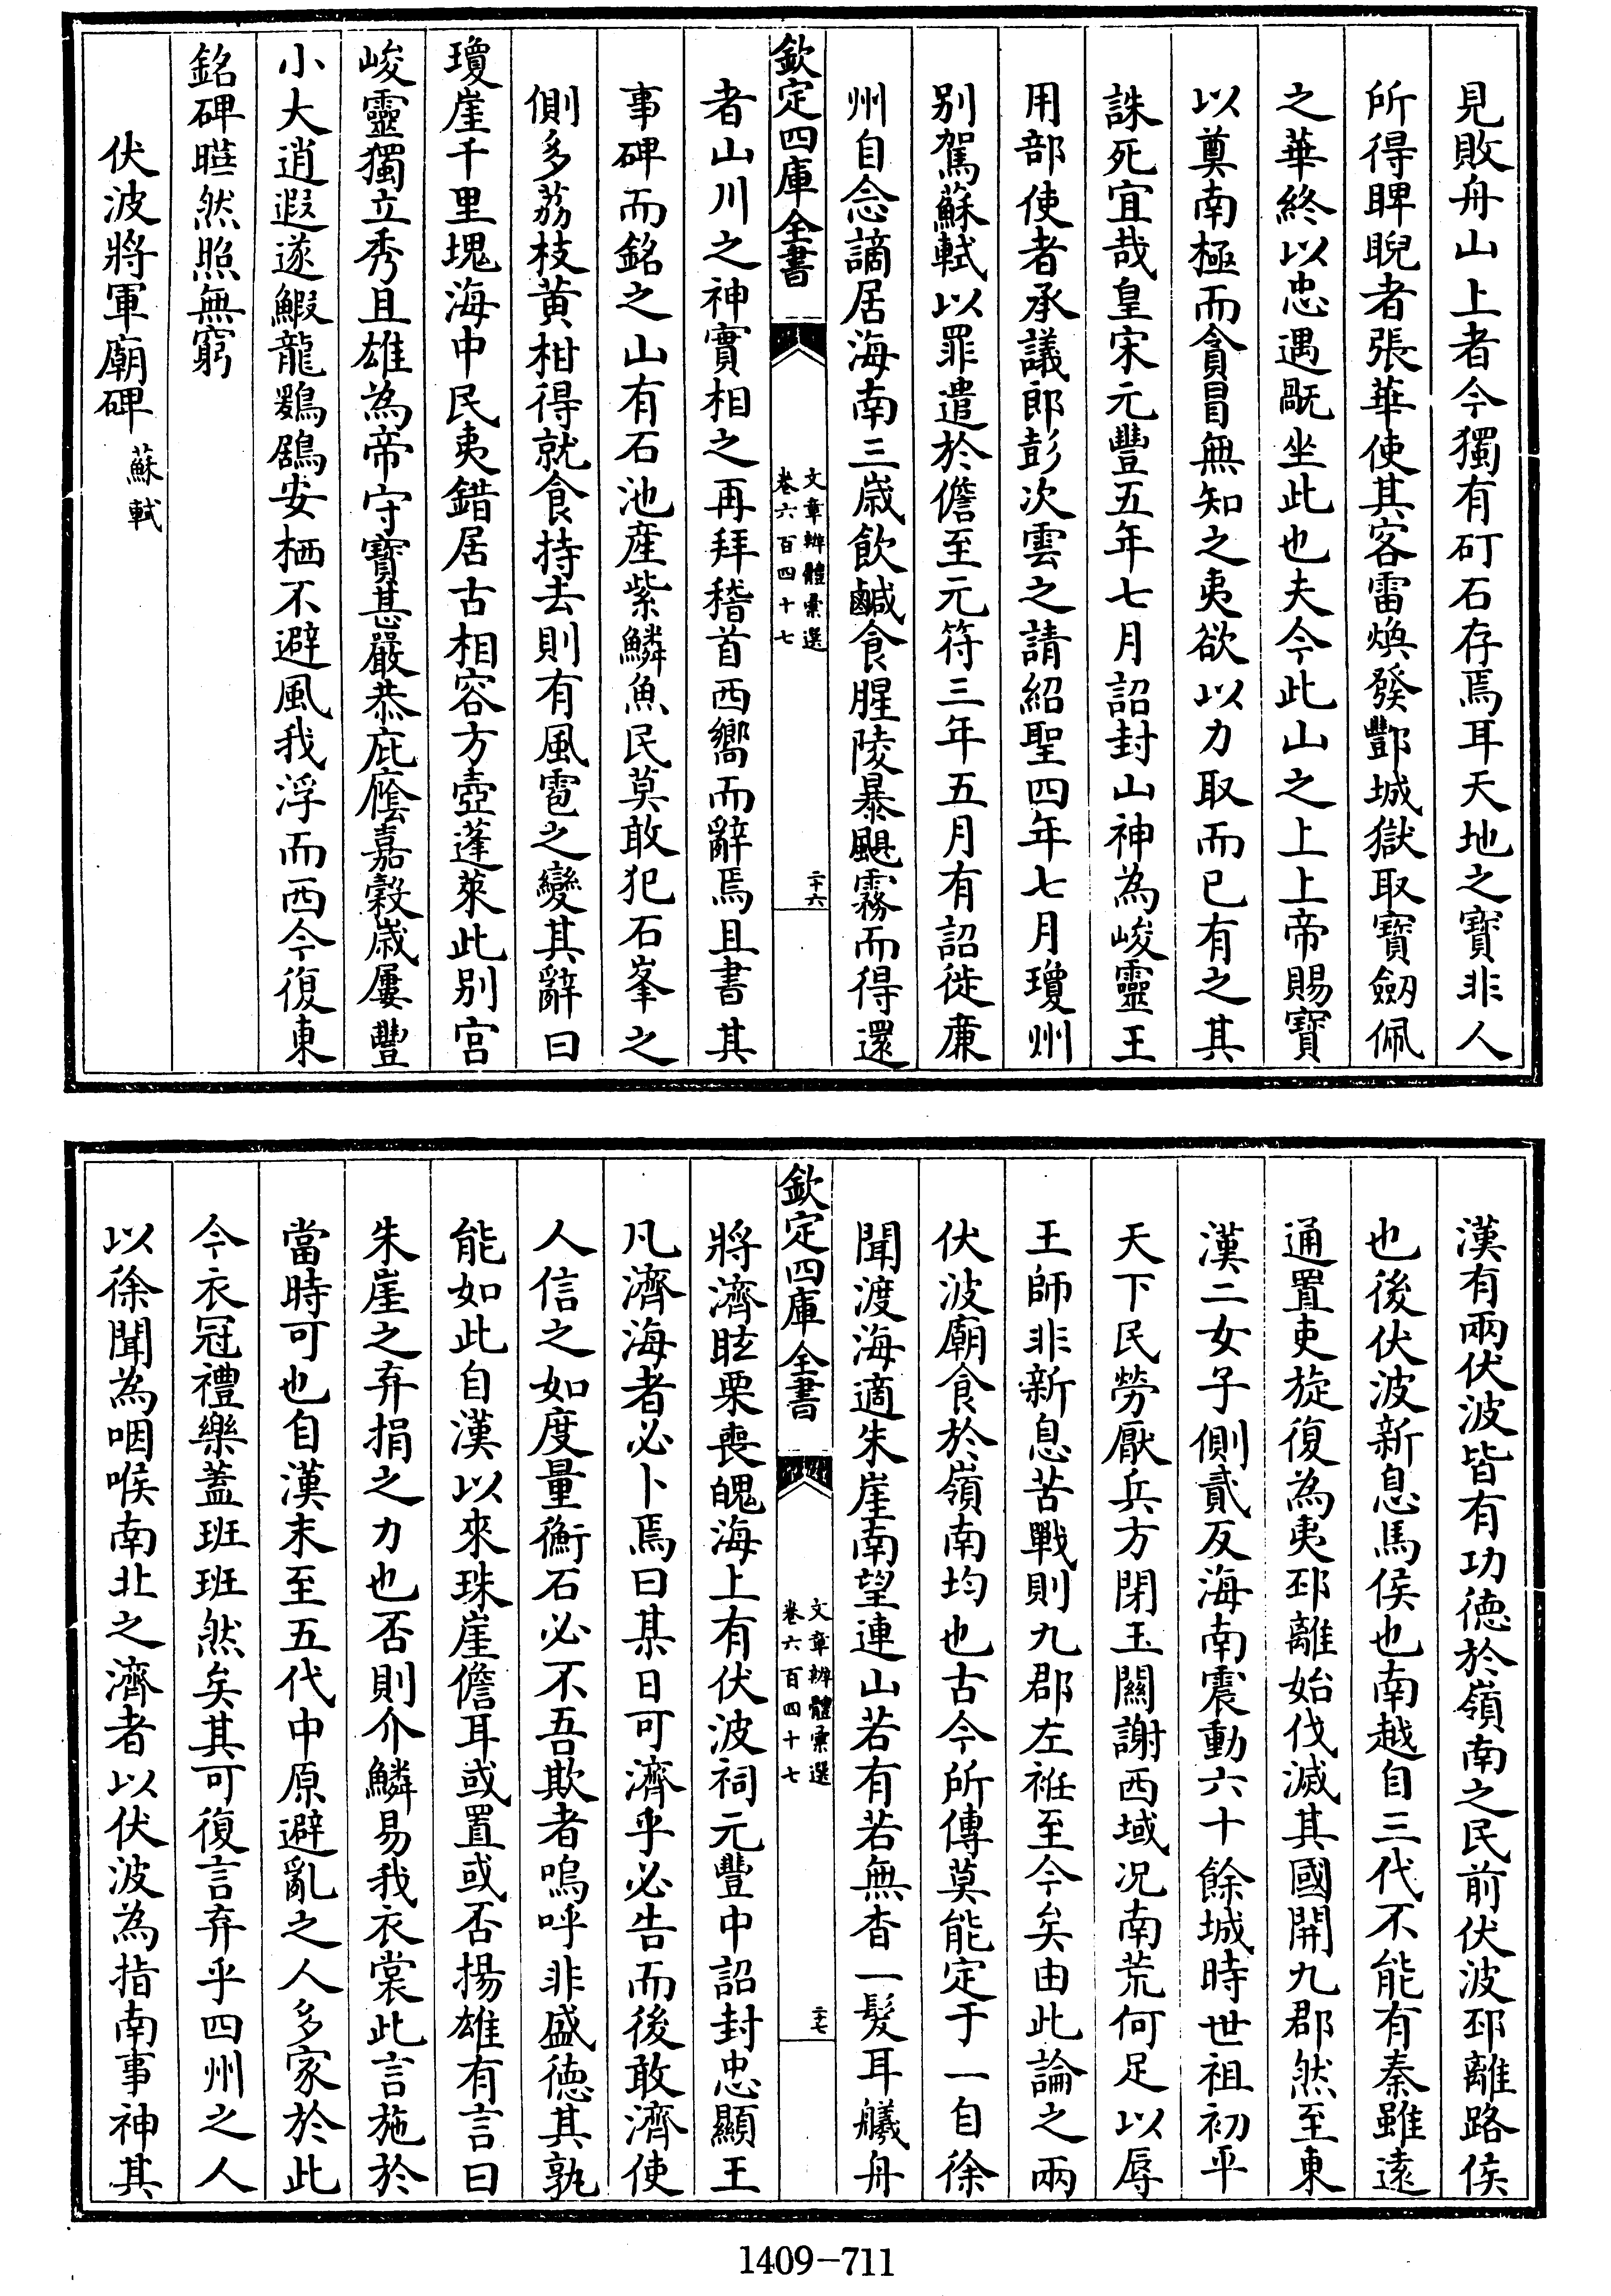 見敗舟山上者今獨有矴石存焉耳天地之寳非人
所得睥睨者張華使其客雷煥發酆城獄取寳劒佩
之華終以忠遇戮坐此也夫今此山之上上帝賜寳
以奠南極而貪冒無知之夷欲以力取而已有之其
誅死宜哉皇宋元豐五年七月詔封山神為峻靈王
用部使者承議郎彭次雲之請紹聖四年七月瓊州
别駕蘇軾以罪遣於儋至元符三年五月有詔徙廉
州自念謫居海南三歳飲鹹食腥陵暴颶霧而得還
欽定四庫全書
文章辨體彚選
卷六百四十七
二十六
者山川之神實相之再拜稽首西嚮而辭焉且書其
事碑而銘之山有石池產紫鱗魚民莫敢犯石峯之
側多荔枝黄柑得就食持去則有風雹之變其辭曰
瓊崖千里塊海中民夷錯居古相容方壺蓬萊此别宫
峻靈獨立秀且雄為帝守寳甚嚴恭庇廕嘉穀歳屢豐
小大逍遥遂鰕龍鷄鶋安栖不避風我浮而西今復東
銘碑㬢然照無窮
伏波將軍廟碑 蘇軾
漢有兩伏波皆有功徳於嶺南之民前伏波邳離路侯
也後伏波新息馬侯也南越自三代不能有秦雖逺
通置吏旋復為夷邳離始伐滅其國開九郡然至東
漢二女子側貳反海南震動六十餘城時世祖初平
天下民勞厭兵方閉玉關謝西域况南荒何足以辱
王師非新息苦戰則九郡左袵至今矣由此論之兩
伏波廟食於嶺南均也古今所傳莫能定于一自徐
聞渡海適朱崖南望連山若有若無杳一髪耳艤舟
欽定四庫全書
文章辨體彚選
卷六百四十七
二十七
將濟眩栗喪魄海上有伏波祠元豐中詔封忠顯王
凡濟海者必卜焉曰某日可濟乎必告而後敢濟使
人信之如度量衡石必不吾欺者嗚呼非盛徳其孰
能如此自漢以來珠崖儋耳或置或否揚雄有言曰
朱崖之弃捐之力也否則介鱗易我衣裳此言施於
當時可也自漢末至五代中原避亂之人多家於此
今衣冠禮樂蓋班班然矣其可復言弃乎四州之人
以徐聞為咽喉南北之濟者以伏波為指南事神其
1409-711